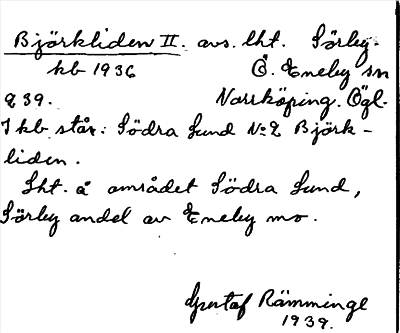 Björkliden II. avs. lht. Sörby.
kb 1936 Ö. Eneby sn
239. Norrköping. Ögl.
I kb står: Södra Lund No 2 Björk-
liden.
Lht. å området Södra Lund,
Sörby andel av Eneby mo.
Gustaf Rämminge
1939.